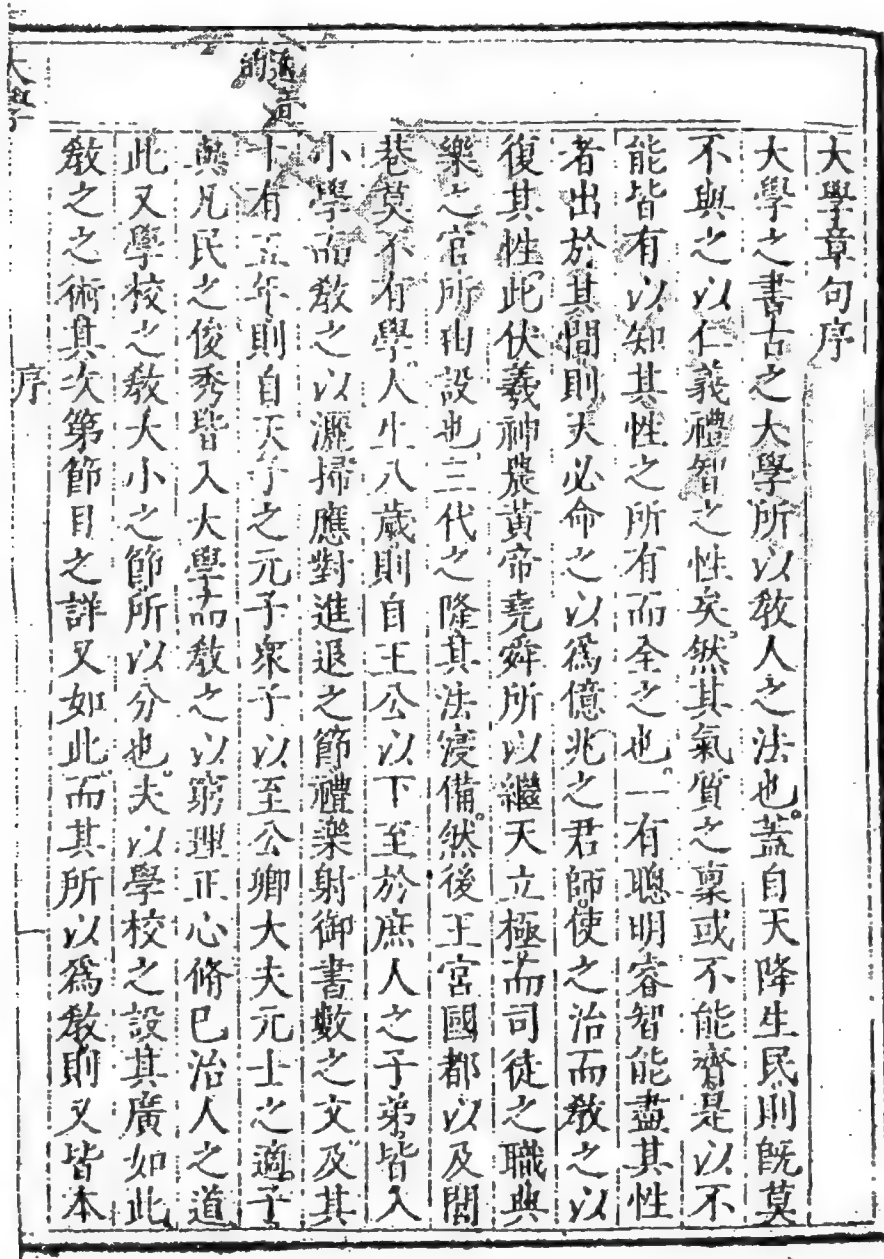 大學章句序
大學之書古之大學所以敎人之法也。蓋自天降生民則既莫
不與之以仁義禮智之性矣。然其氣質之稟或不能齊是以不
能皆有以知其性之所有而全之也。一有聰明睿智能盡其性
者出於其間則天必命之以爲億兆之君師使之治而敎之以
復其性此伏羲神農黃帝堯舜所以繼天立極而司徒之職典
樂之官所由設也三代之隆其法寖備。然後王宮國都以及閭
巷莫不有學人生八歲則自王公以下至於庶人之子弟皆入
小學而敎之以灑掃應對進退之節禮樂射御書數之文及其
十有五年則自天子之元子衆子以至公卿大夫元士之適子
與凡民之俊秀皆入大學而敎之以窮理正心脩己治人之道
此又學校之敎大小之節所以分也。夫以學校之設其廣如此
敎之之術其次第節目之詳又如此。而其所以爲敎則又皆本
大學
序
一